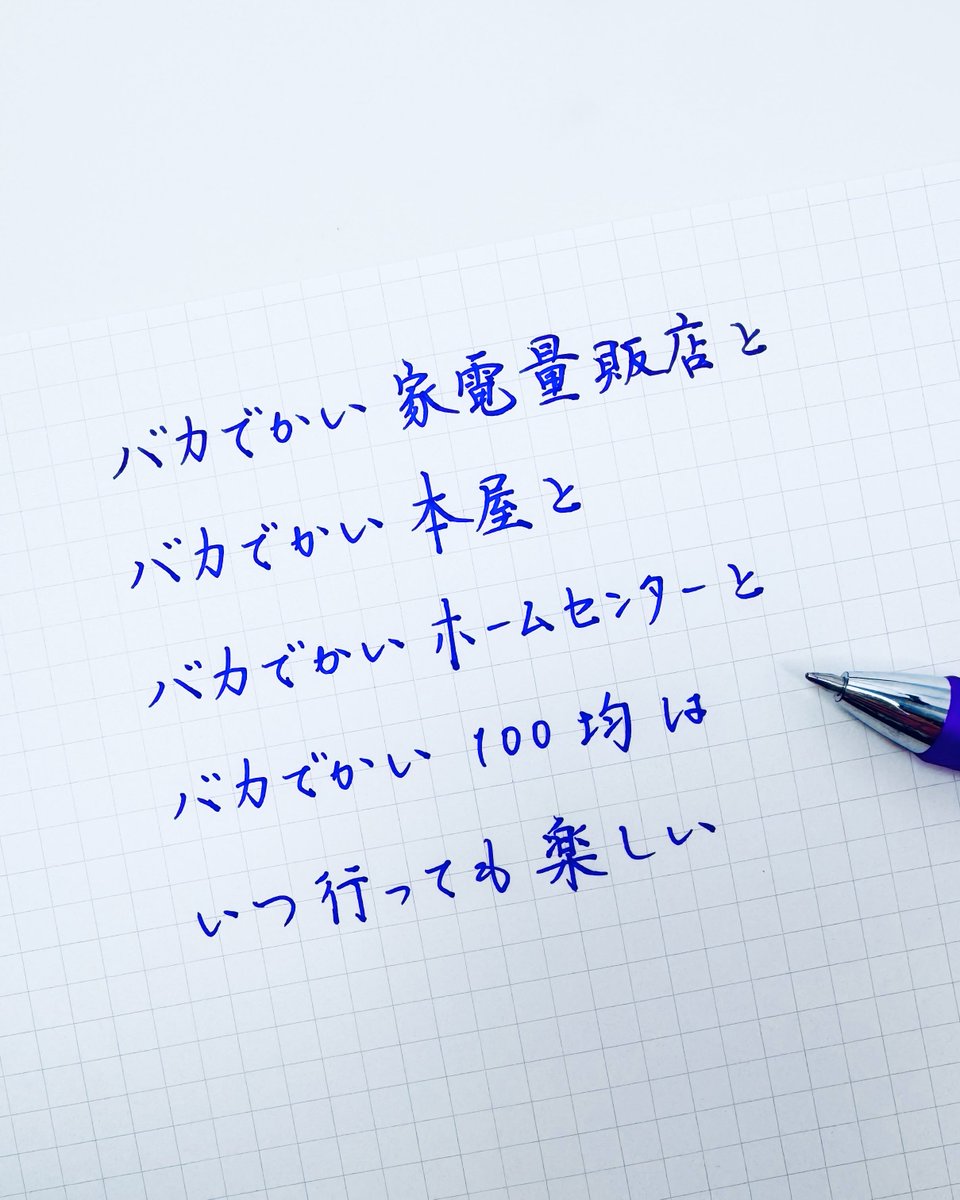 バカでかい家電量販店と
バカでかい本屋と
バカでかいホームセンターと
バカでかい100均は
いつ行っても楽しい